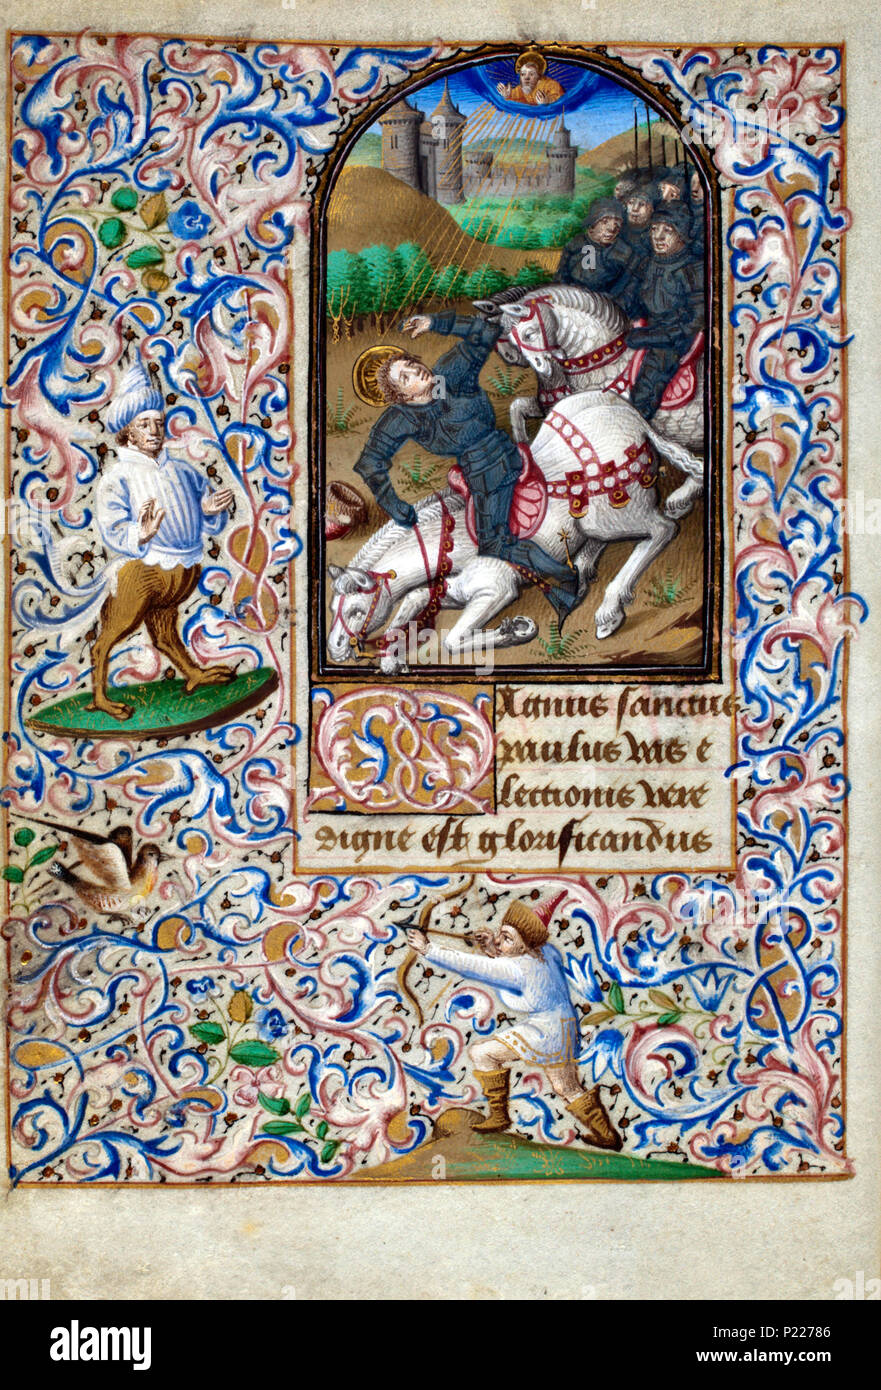 MAgnus sanctus
paulus vas e
lectionis vere
digne est glorificandus
alamy
Image ID: P22786
www.alamy.com